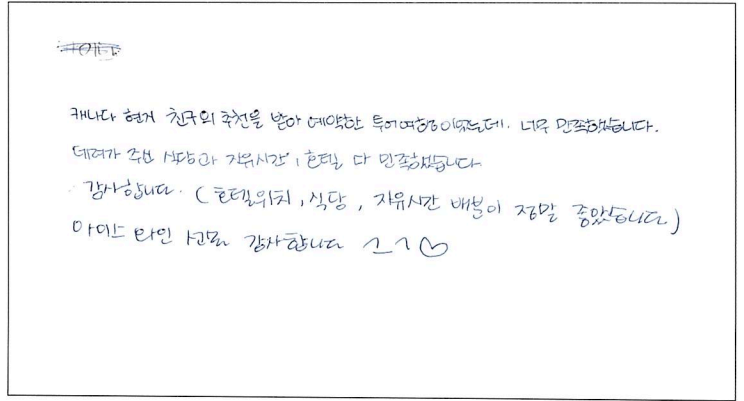 캐나다 현거 친구의 추천을 받아 예약한 투어여행이었는데. 너무 만족했습니다.
데려가 주신 식당과 자유시간, 호텔 다 만족했습니다
감사합니다. (호텔위치, 식당, 자유시간 배분이 정말 좋았습니다)
아이스 와인 선물 감사합니다 ^^♡